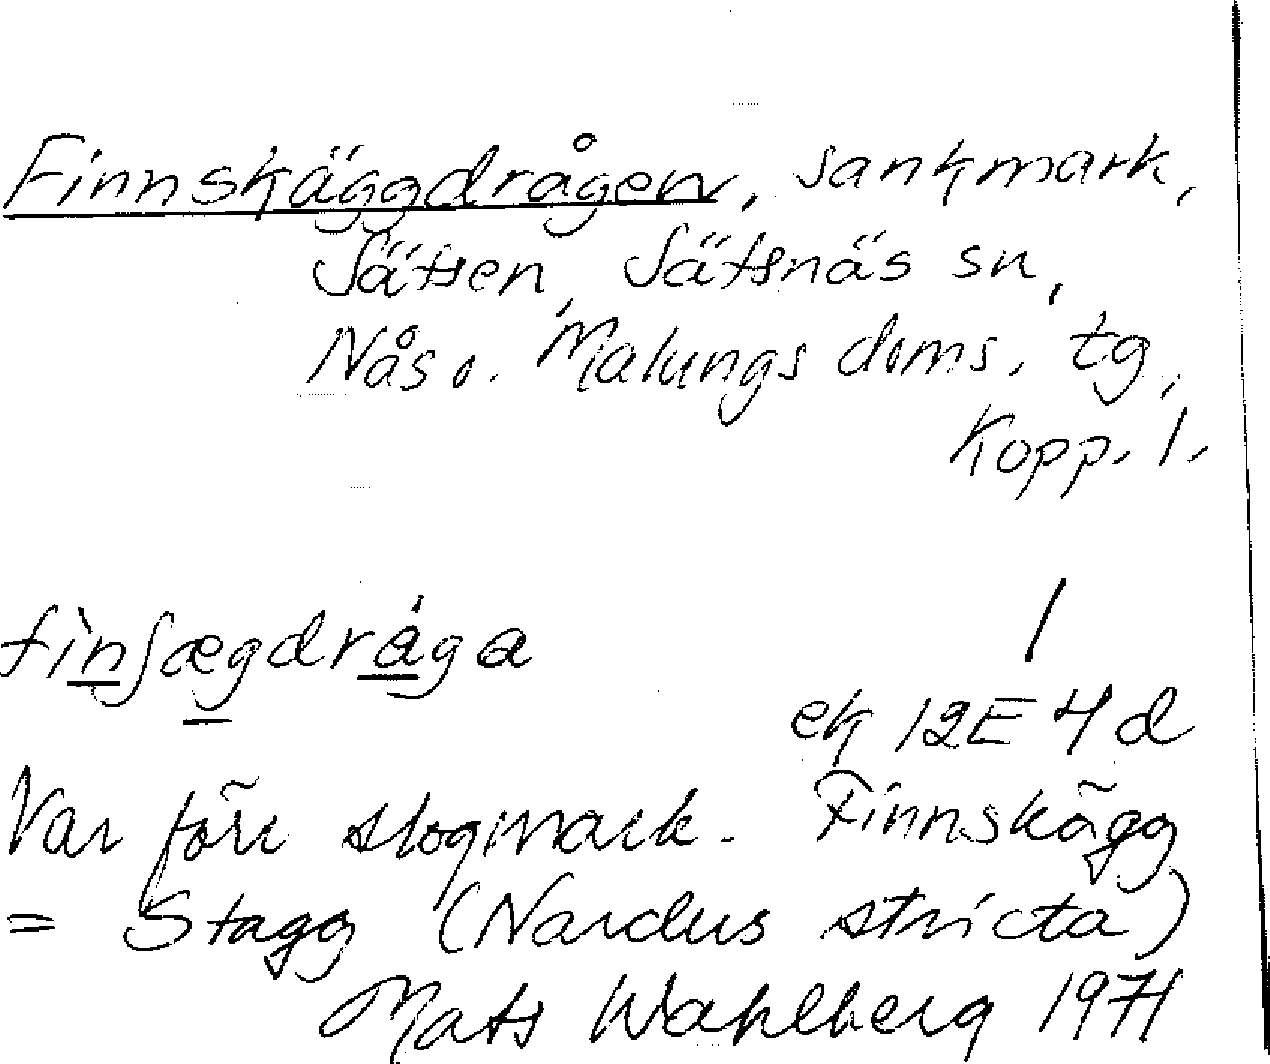 Finnskäggdrågen, sankmark,
Sätsen, Sätsnäs sn,
Nås o. Malungs doms. tg,
Kopp. l.
fìnʃægdråga
/
ek 12E 4d
Var förr slogmark. Finnskägg
= Stagg (Nardus stricta)
Mats Wahlberg 1971